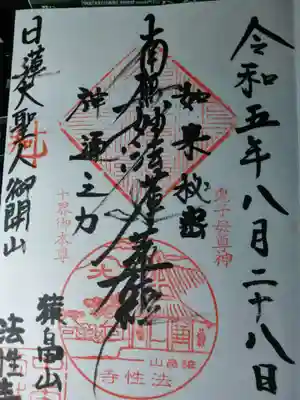 令和五年八月二十八日
鬼子母尊神
如来秘密
南無妙法蓮華経
神通之力
十界御本尊
日蓮大聖人御開山
猿畠山
法性寺
猿畠山
法性寺